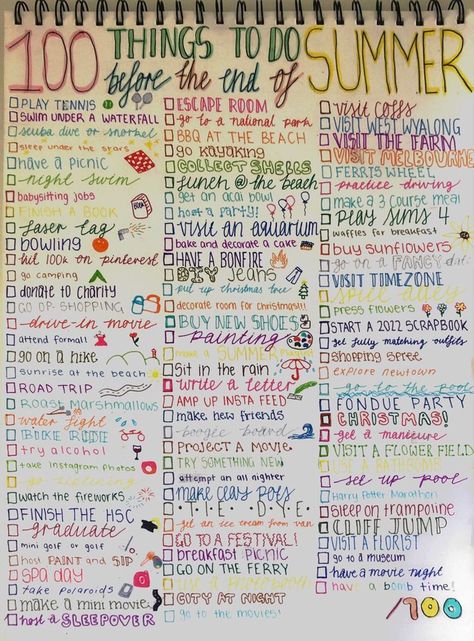 100 THINGS TO DO
before the end of SUMMER
PLAY TENNIS
SWIM UNDER A WATERFALL
scuba dive or snorkel
sleep under the stars
have a picnic
night swim
babysitting jobs
FINISH A BOOK
laser tag
bowling
hit 100k on pinterest
go camping
donate to charity
GO OP-SHOPPING
drive-in movie
attend formal!
go on a hike
sunrise at the beach
ROAD TRIP
Roast marshmallows
water fight
BIKE RIDE
try alcohol
take instagram photos
go iceskating
watch the fireworks
FINISH THE HSC
graduate
mini golf or golf
host PAINT and SIP
SPA DAY
take polaroids
make a mini movie
host a SLEEPOVER
ESCAPE ROOM
go to a national park
BBQ AT THE BEACH
go kayaking
COLLECT SHELLS
lunch @ the beach
get an acai bowl
host a party!
visit an aquarium
bake and decorate a cake
HAVE A BONFIRE
DIY jeans
put up christmas tree
decorate room for christmas!!
BUY NEW SHOES
painting
make a SUMMER
Sit in the rain
write a letter
AMP UP INSTA FEED
make new friends
boogie board
PROJECT A MOVIE
TRY SOMETHING NEW
attempt an all nighter
make clay pots
TIE DYE
get an ice cream from van
GO TO A FESTIVAL!
breakfast picnic
GO ON THE FERRY
use a photobooth
CITY AT NIGHT
go to the movies!
visit coffs
VISIT WEST WYALONG
VISIT THE FARM
VISIT MELBOURNE
FERRIS WHEEL
practice driving
make a 3 course meal
PLAY SIMS 4
waffles for breakfast
buy sunflowers
go on a FANCY date
VISIT TIMEZONE
spill day
press flowers
START A 2022 SCRAPBOOK
get fully matching outfits
shopping spree
explore newtown
go to the pool
FONDUE PARTY
CHRISTMAS!
get a manicure
VISIT A FLOWER FIELD
USE A BATHBOMB
set up pool
Harry Potter Marathon
sleep on trampoline
CLIFF JUMP
VISIT A FLORIST
go to a museum
have a movie night
have a bomb time!
/100